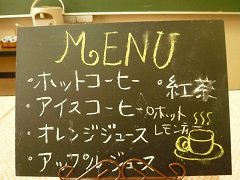 MENU
・ホットコーヒー
・アイスコーヒー
・オレンジジュース
・アップルジュース
・紅茶
ホット
レモンティ